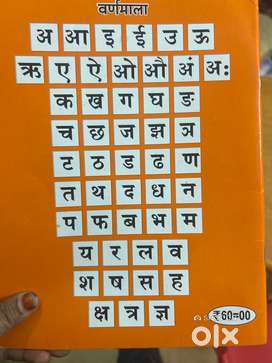 वर्णमाला
अ आ इ ई उ ऊ
ऋ ए ऐ ओ औ अं अः
क ख ग घ ङ
च छ ज झ ञ
ट ठ ड ढ ण
त थ द ध न
प फ ब भ म
य र ल व
श ष स ह
क्ष त्र ज्ञ
₹60=00
olx